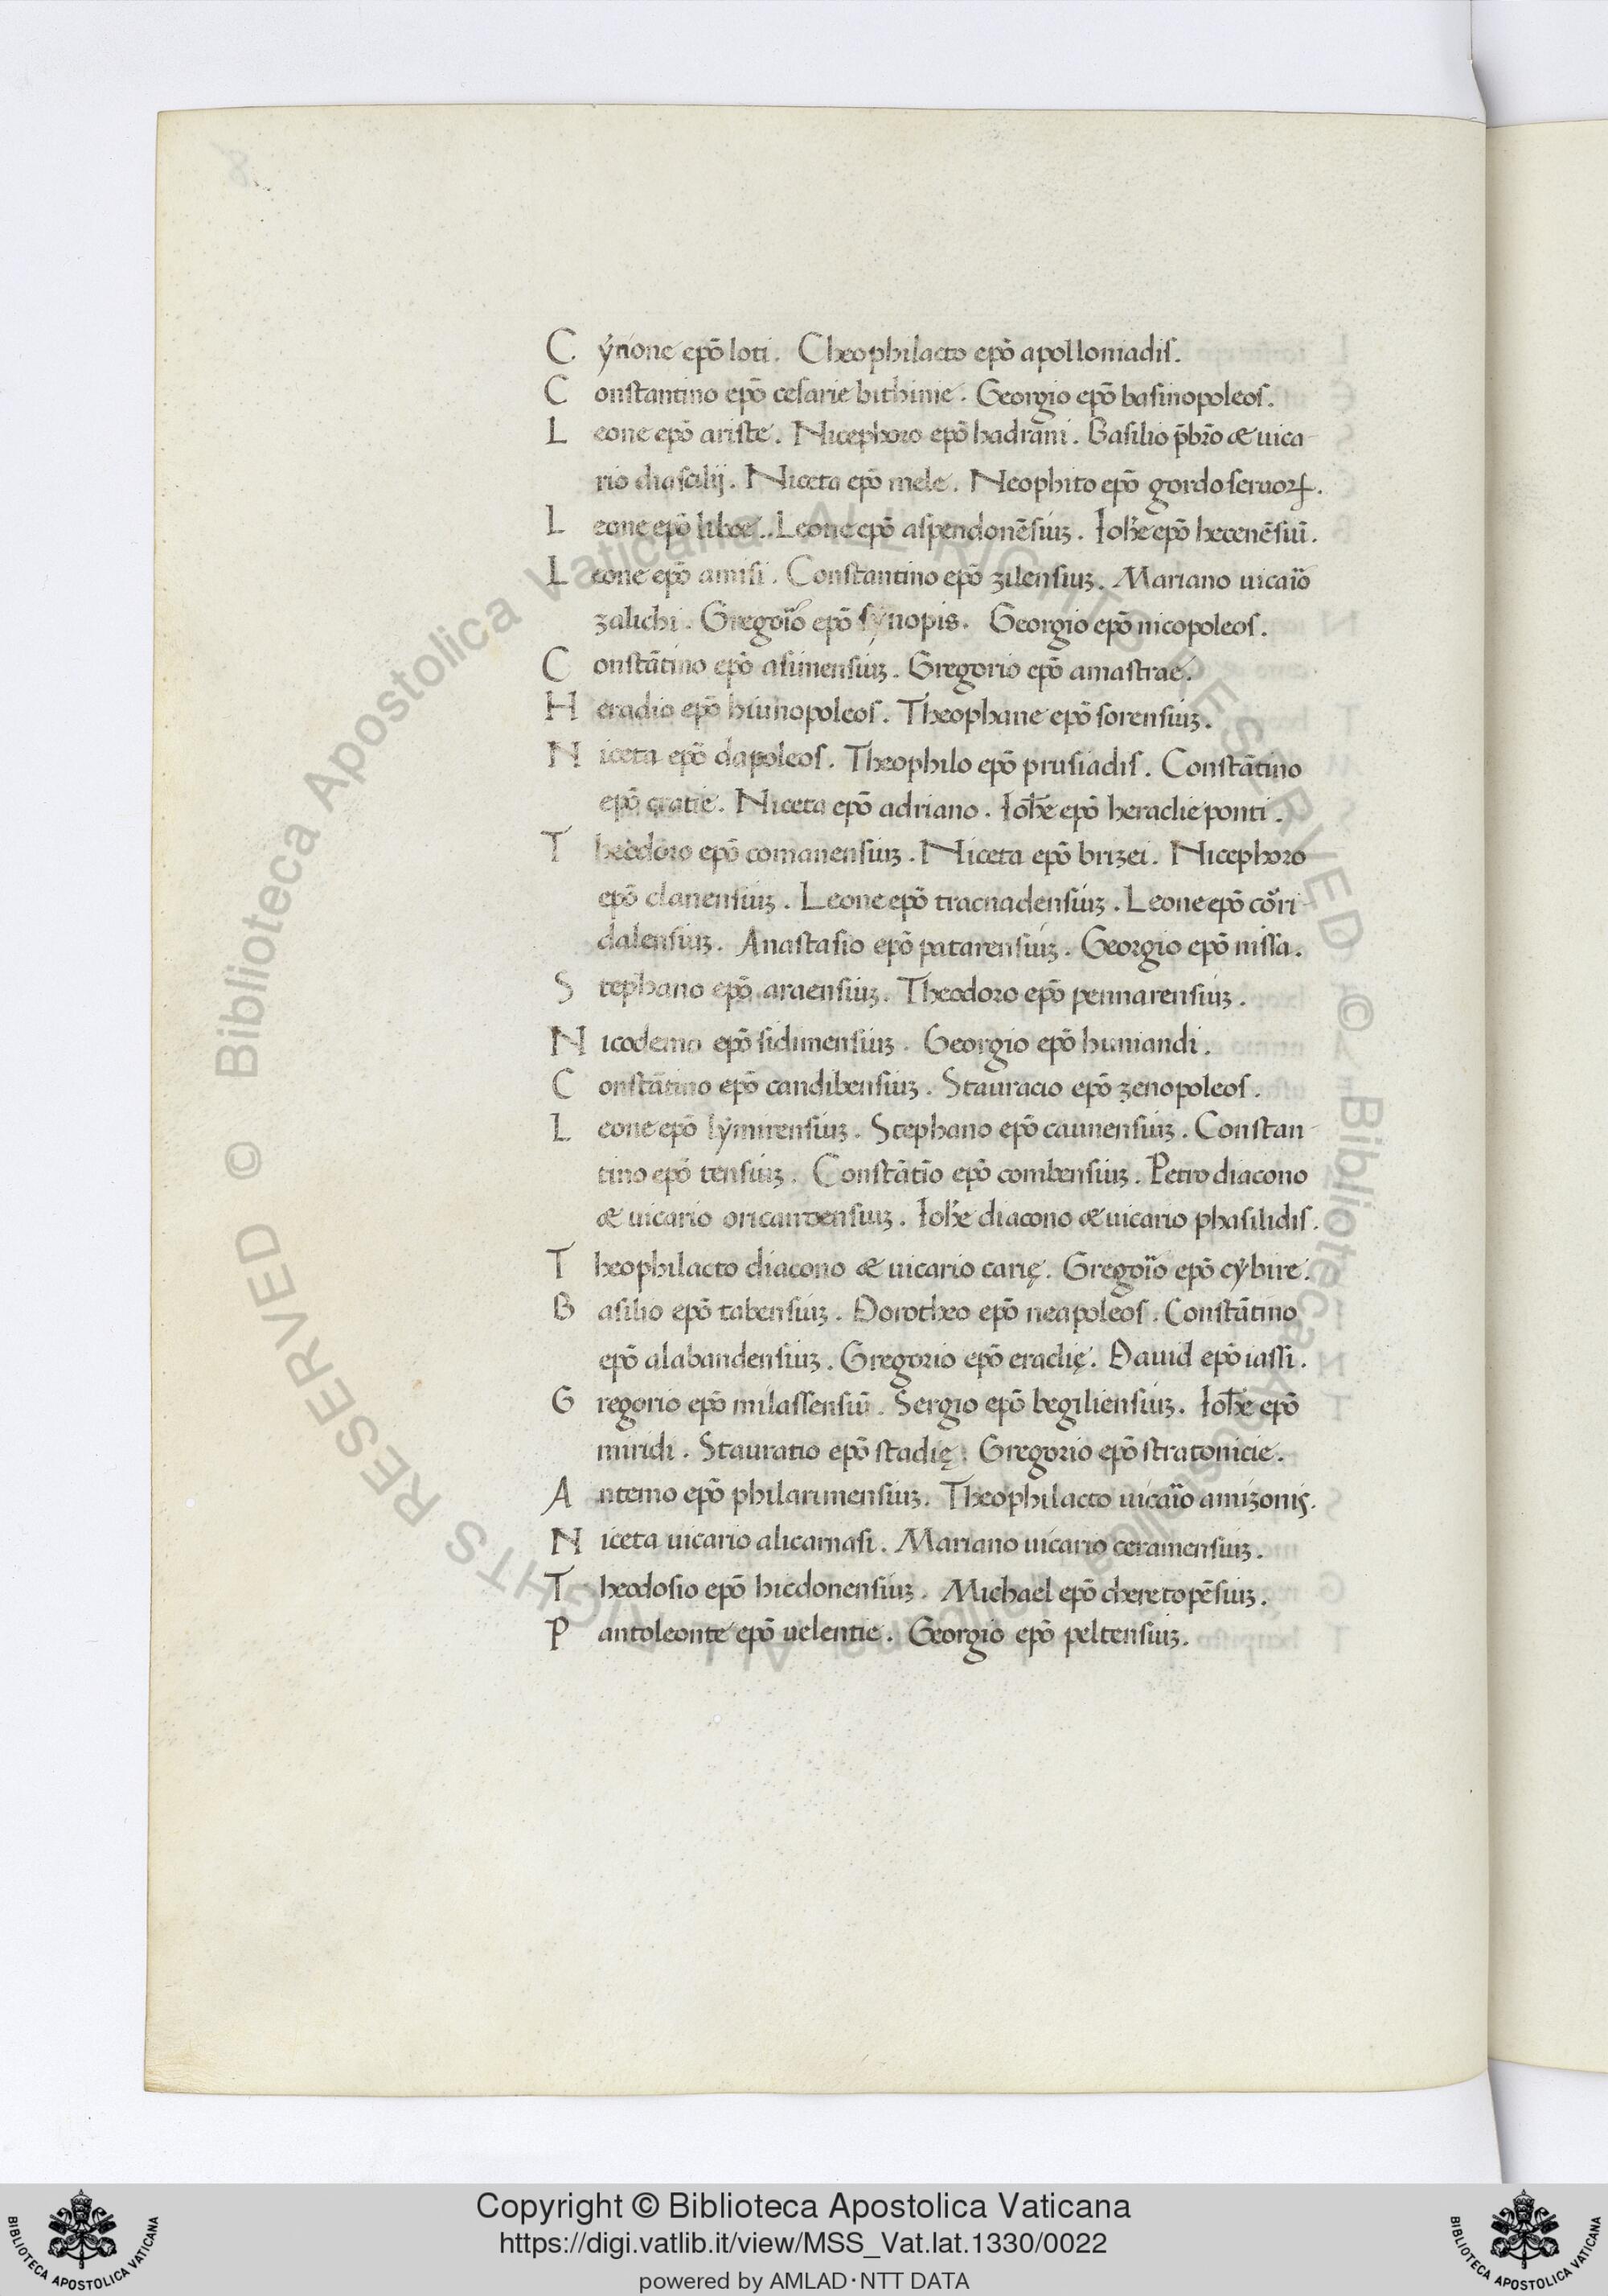 C ẏnone ep̄o loti. Cheophilacto ep̄o apolloniadis.
C onstantino ep̄o cesarie bithinie. Georgio ep̄o basinopoleos.
L eone ep̄o ariste. Nicephoro ep̄o hadrāni. Basilio p̄br̄o & uica-
rio diascilij. Niceta ep̄o mele. Neophito ep̄o gordoseruoꝝ.
L eone ep̄o libee. Leone ep̄o aspendonēsiuꝫ. Ioh̄e ep̄o hecenēsiū.
L eone ep̄o amisi. Constantino ep̄o zilensiuꝫ. Mariano uicaıͦo
zalichi. Gregoıͦo ep̄o sẏnopis. Georgio ep̄o nicopoleos.
C onstātino ep̄o asinensiuꝫ. Gregorio ep̄o amastrae.
H eradio ep̄o hiunopoleos. Theophane ep̄o sorensiuꝫ.
N iceta ep̄o dapoleos. Theophilo ep̄o prusiadis. Constātino
ep̄o cratie. Niceta ep̄o adriano. Ioh̄e ep̄o heraclie ponti.
T heodoro ep̄o comanensiuꝫ. Niceta ep̄o brizei. Nicephoro
ep̄o clanensiuꝫ. Leone ep̄o tracnadensiuꝫ. Leone ep̄o cori-
dalensiuꝫ. Anastasio ep̄o patarensiuꝫ. Georgio ep̄o nissa.
S tephano ep̄o araensiuꝫ. Theodoro ep̄o pennarensiuꝫ.
N icodemo ep̄o sidimensiuꝫ. Georgio ep̄o huniandi.
C onstātino ep̄o candibensiuꝫ. Stauracio ep̄o zenopoleos.
L eone ep̄o lẏmirensiuꝫ. Stephano ep̄o caunensiuꝫ. Constan-
tino ep̄o tensiuꝫ. Constātīo ep̄o combensiuꝫ. Petro diacono
& uicario oricandensiuꝫ. Ioh̄e diacono & uicario phasilidis.
T heophilacto diacono & uicario carię. Gregoıͦo ep̄o cẏbire.
B asilio ep̄o tabensiuꝫ. Dorotheo ep̄o neapoleos. Constātino
ep̄o alabandensiuꝫ. Gregorio ep̄o eraclię. Dauid ep̄o iassi.
G regorio ep̄o milassensiū. Sergio ep̄o begiliensiuꝫ. Ioh̄e ep̄o
miridi. Stauratio ep̄o stadię. Gregorio ep̄o stratonicie.
A ntemo ep̄o philarimensiuꝫ. Theophilacto uicaıͦo amizonis.
N iceta uicario alicarnasi. Mariano uicario ceramensiuꝫ.
T heodosio ep̄o hicdonensiuꝫ. Michael ep̄o cheretopēsiuꝫ.
P antoleonte ep̄o uelentie. Georgio ep̄o peltensiuꝫ.
© Biblioteca Apostolica Vaticana ALL RIGHTS RESERVED © Biblioteca Apostolica Vaticana ALL RIGHTS RESERVED
Copyright © Biblioteca Apostolica Vaticana
https://digi.vatlib.it/view/MSS_Vat.lat.1330/0022
powered by AMLAD·NTT DATA
BIBLIOTECA APOSTOLICA VATICANA
BIBLIOTECA APOSTOLICA VATICANA